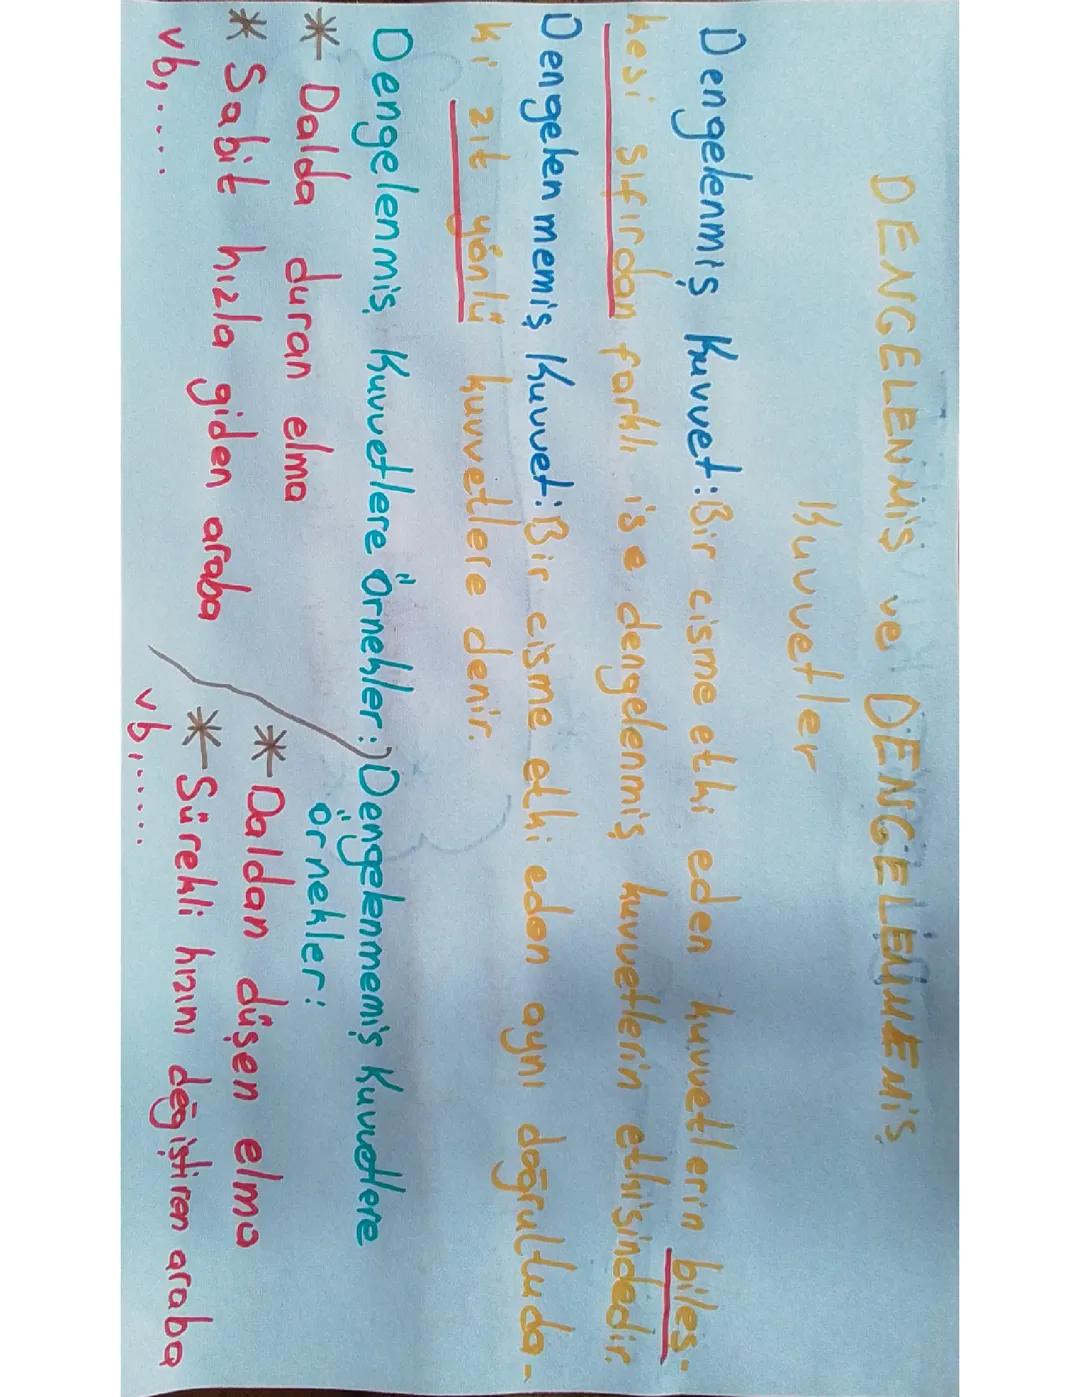 DENGELENMİŞ ve DENGELENMEMİŞ
Kuvvetler
Dengelenmiş Kuvvet: Bir cisme etki eden kuvvetlerin bileş-
kesi sıfırdan farklı ise dengelenmiş kuvvetlerin etkisindedir.
Dengelenmemiş Kuvvet: Bir cisme etki eden aynı doğrultuda-
ki zıt yönlü kuvvetlere denir.
Dengelenmiş Kuvvetlere Örnekler:
* Dalda duran elma
* Sabit hızla giden araba
vb,....
Dengelenmemiş Kuvvetlere
örnekler:
* Daldan düşen elma
* Sürekli hızını değiştiren araba
vb,.....